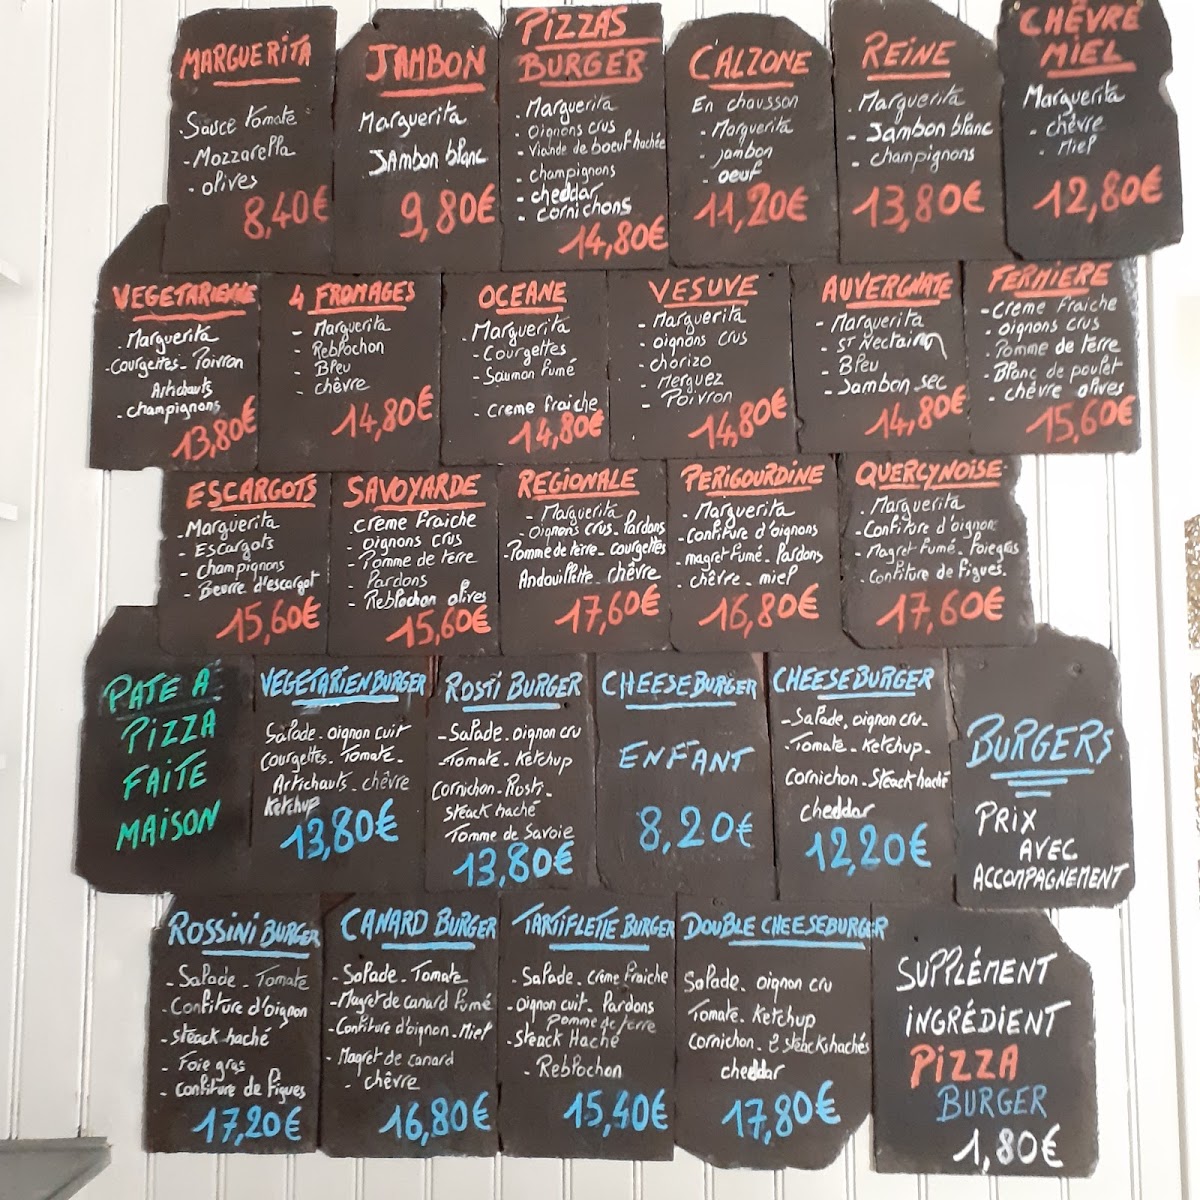 MARGUERITA
. Sauce tomate
- Mozzarella
- olives
8,40€
JAMBON
Marguerita
JAMbon blanc
9,80€
PIZZAS
BURGER
- Marguerita
- oignons crus
- Viande de boeuf hachée
- champignons
- cheddar
- cornichons
14,80€
CALZONE
En chausson
- Marguerita
- jambon
- oeuf
11,20€
REINE
- Marguerita
- Jambon blanc
- champignons
13,80€
CHÊVRE
MIEL
Marguerita
- chêvre
- Miel
12,80€
VEGETARIENNE
. Marguerita
- Courgettes - Poivron
Artichauts
- champignons
13,80€
4 FROMAGES
- Marguerita
- Reblochon
- Bleu
- chêvre
14,80€
OCEANE
- Marguerita
- Courgettes
- Saumon fumé
- Creme fraiche
14,80€
VESUVE
- Marguerita
- oignons crus
- chorizo
- Merguez
- Poivron
14,80€
AUVERGNATE
- Marguerita
- St Nectaire
- Bleu
- Jambon sec
14,80€
FERMIERE
- Creme fraiche
- oignons crus
- Pomme de terre
- Blanc de poulet
- chêvre olives
15,60€
ESCARGOTS
- Marguerita
- Escargots
- Champignons
- Beurre d'escargot
15,60€
SAVOYARDE
creme fraiche
- oignons crus
- Pomme de terre
- Lardons
- Reblochon olives
15,60€
REGIONALE
- Marguerita
- Oignons crus - Lardons
- Pomme de terre - courgettes
Andouillette - chêvre
17,60€
PERIGOURDINE
- Marguerita
- Confiture d'oignons
- magret fumé - Lardons
- chêvre - miel
16,80€
QUERCYNOISE
- Marguerita
- Confiture d'oignon
- Magret fumé - Foie gras
- Confiture de Figues -
17,60€
PATE A
PIZZA
FAITE
MAISON
VEGETARIEN BURGER
Salade - oignon cuit
Courgettes - Tomate -
Artichauts - chêvre
Ketchup
13,80€
ROSTI BURGER
- Salade - oignon cru
- Tomate - Ketchup
Cornichon - Rosti -
Steack haché
Tomme de Savoie
13,80€
CHEESEBURGER
ENFANT
8,20€
CHEESEBURGER
- Salade, oignon cru -
- Tomate - Ketchup -
Cornichon - Steack haché
cheddar
12,20€
BURGERS
PRIX
AVEC
ACCOMPAGNEMENT
ROSSINI BURGER
- Salade - Tomate
Confiture d'oignon
- Steack haché
- Foie gras
- Confiture de Figues
17,20€
CANARD BURGER
- Salade - Tomate
- Magret de canard fumé
- Confiture d'oignon - Miel
- Magret de canard
- chêvre
16,80€
TARTIFLETTE BURGER
- Salade - crème fraiche
- oignon cuit - Lardons
Pomme de terre
- Steack Haché
- Reblochon
15,40€
DOUBLE CHEESEBURGER
Salade, oignon cru
Tomate - Ketchup
Cornichon - 2 steacks hachés
cheddar
17,80€
SUPPLÉMENT
INGRÉDIENT
PIZZA
BURGER
1,80€